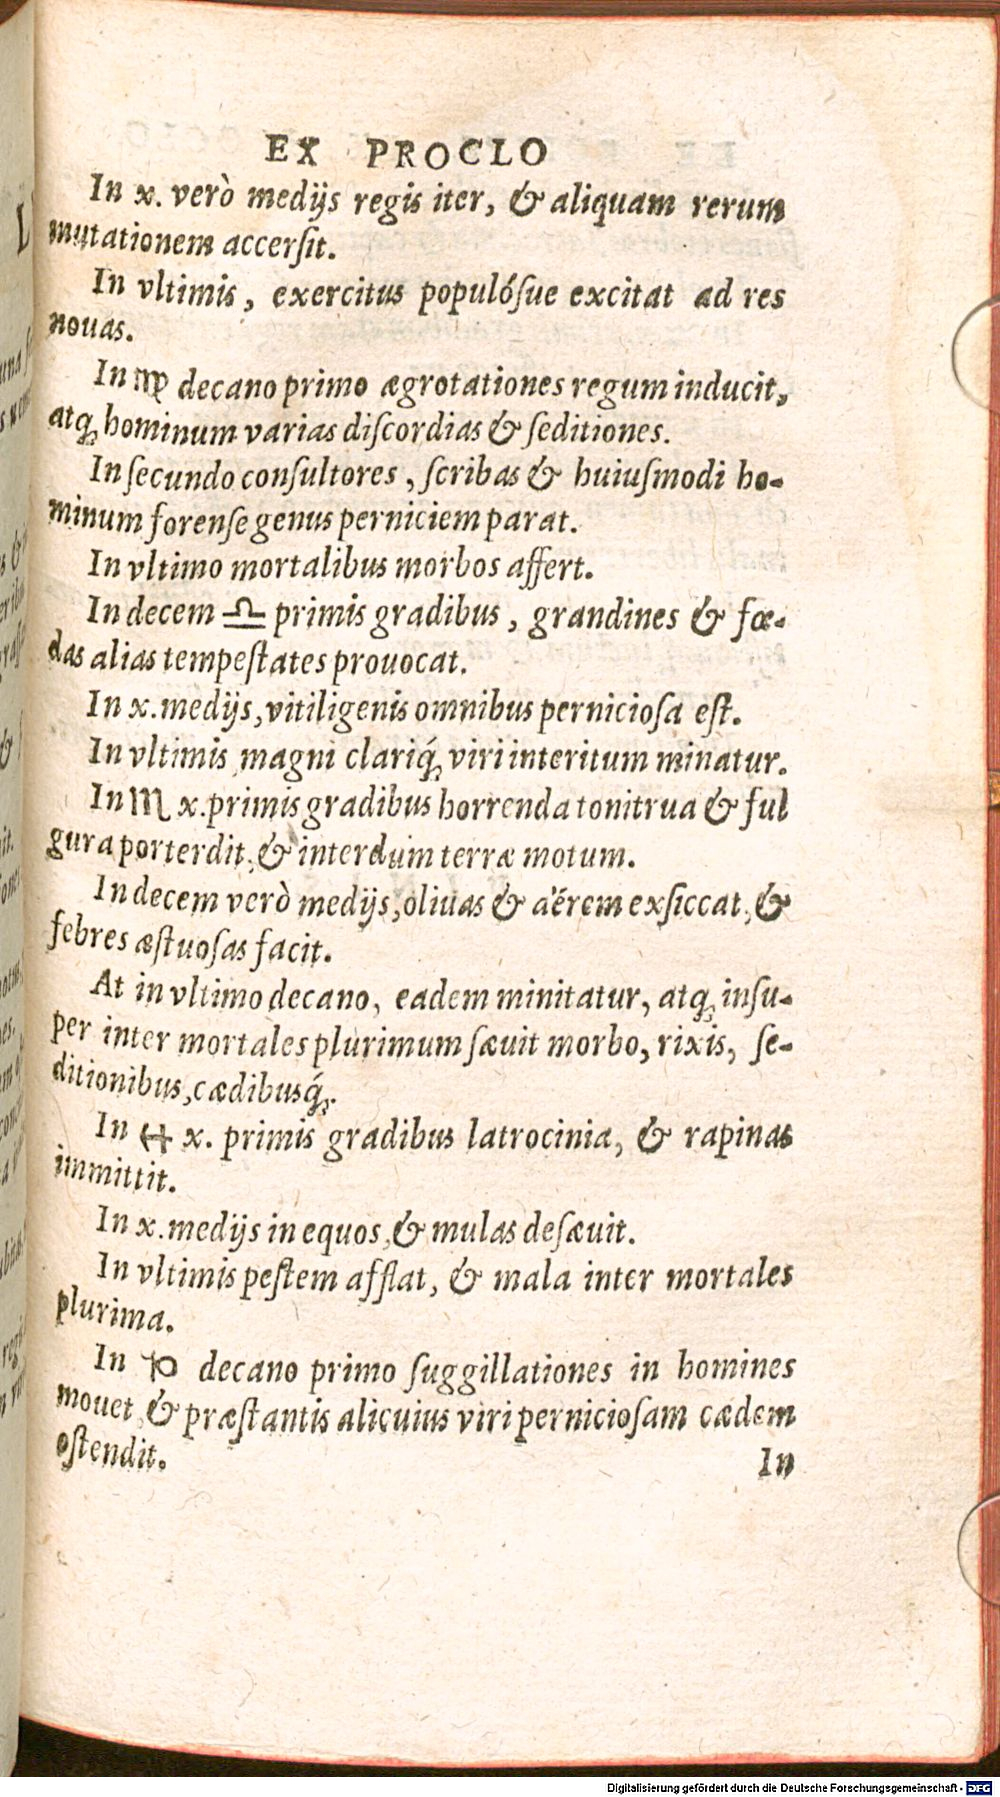 EX PROCLO
In x. verò medijs regis iter, & aliquam rerum
mutationem accersit.
In vltimis, exercitus populósue excitat ad res
nouas.
In ♍ decano primo ægrotationes regum inducit,
atq; hominum varias discordias & seditiones.
In secundo consultores, scribas & huiusmodi ho-
minum forense genus perniciem parat.
In vltimo mortalibus morbos affert.
In decem ♎ primis gradibus, grandines & fœ-
das alias tempestates prouocat.
In x. medijs, vitiligenis omnibus perniciosa est.
In vltimis magni clariq́; viri interitum minatur.
In ♏ x. primis gradibus horrenda tonitrua & ful
gura porterdit, & interdum terræ motum.
In decem verò medijs, oliuas & aërem exsiccat, &
febres æstuosas facit.
At in vltimo decano, eadem minitatur, atq; insu-
per inter mortales plurimum sæuit morbo, rixis, se-
ditionibus, cædibusq́;.
In ♐ x. primis gradibus latrocinia, & rapinas
immittit.
In x. medijs in equos, & mulas desæuit.
In vltimis pestem afflat, & mala inter mortales
plurima.
In ♑ decano primo suggillationes in homines
mouet, & præstantis alicuius viri perniciosam cædem
ostendit.
In
Digitalisierung gefördert durch die Deutsche Forschungsgemeinschaft - DFG